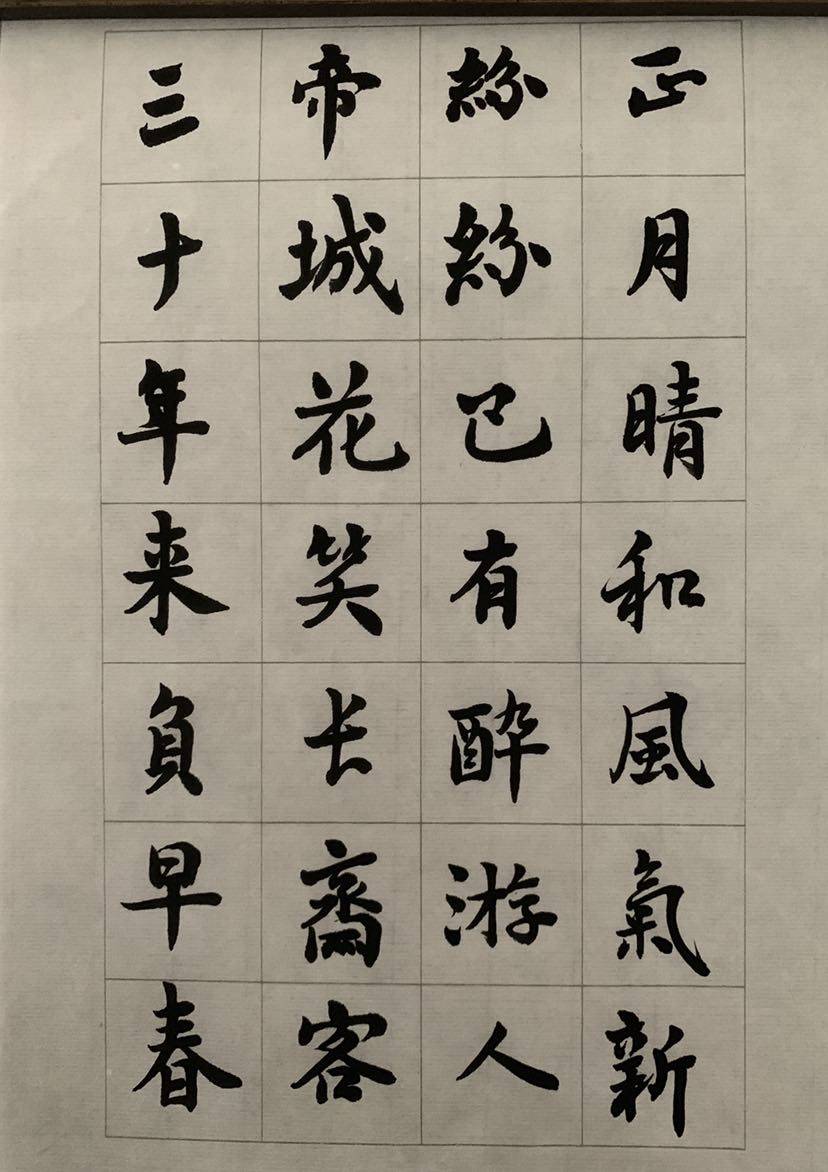 正月晴和風氣新
紛紛已有醉游人
帝城花笑长齋客
三十年来負早春